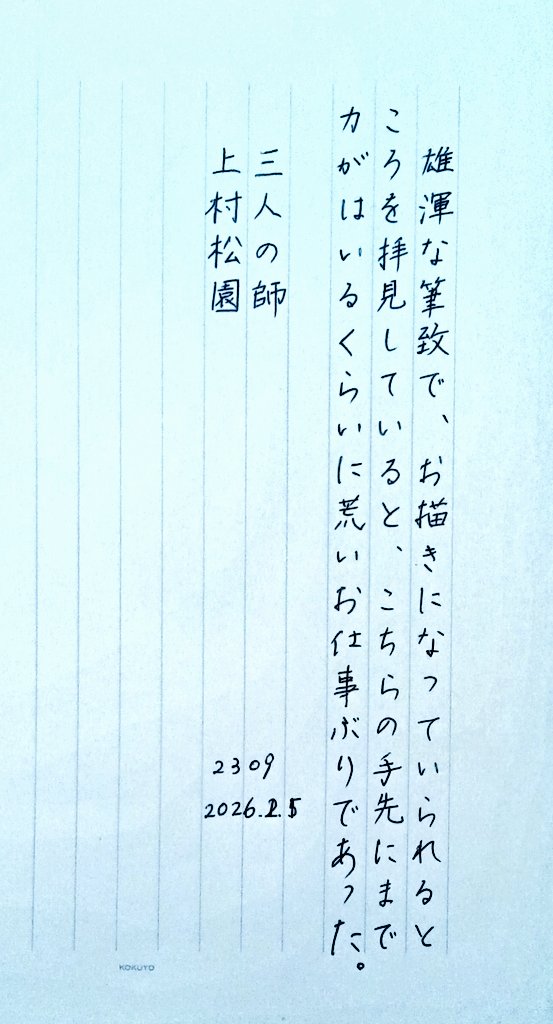 雄渾な筆致で、お描きになっていられると
ころを拝見していると、こちらの手先にまで
力がはいるくらいに荒いお仕事ぶりであった。
三人の師
上村松園
2309
2026.2.5
KOKUYO